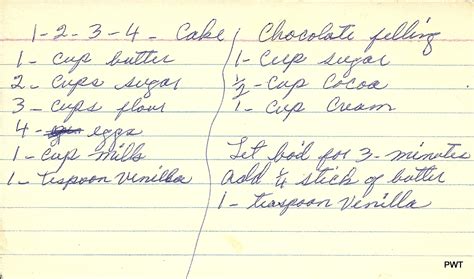 1-2-3-4- Cake
1- Cup butter
2- Cups sugar
3- Cups flour
4- eggs
1- Cup milk
1- teaspoon Venilla
Chocolate filling
1- Cup sugar
1/2- Cup Cocoa
1- Cup Cream
Let boil for 3- minutes
Add 1/4 stick of butter
1- teaspoon Venilla
PWT